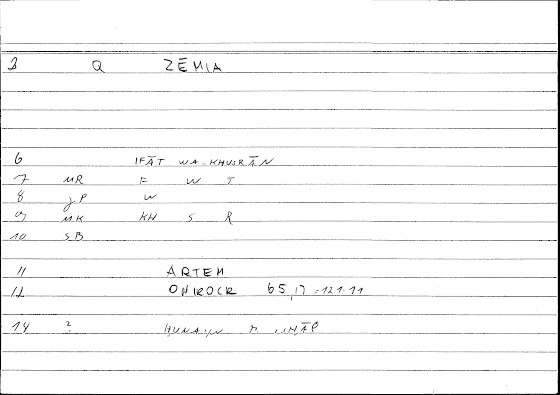 3 Q ZĒMIA
6 IFĀT WA-KHUSRĀN
7 MR F W T
8 JP W
9 MK KH S R
10 SB
11 ARTEM
12 ONIROCR 65,17 = 121.11
14 ? ḤUNAYN